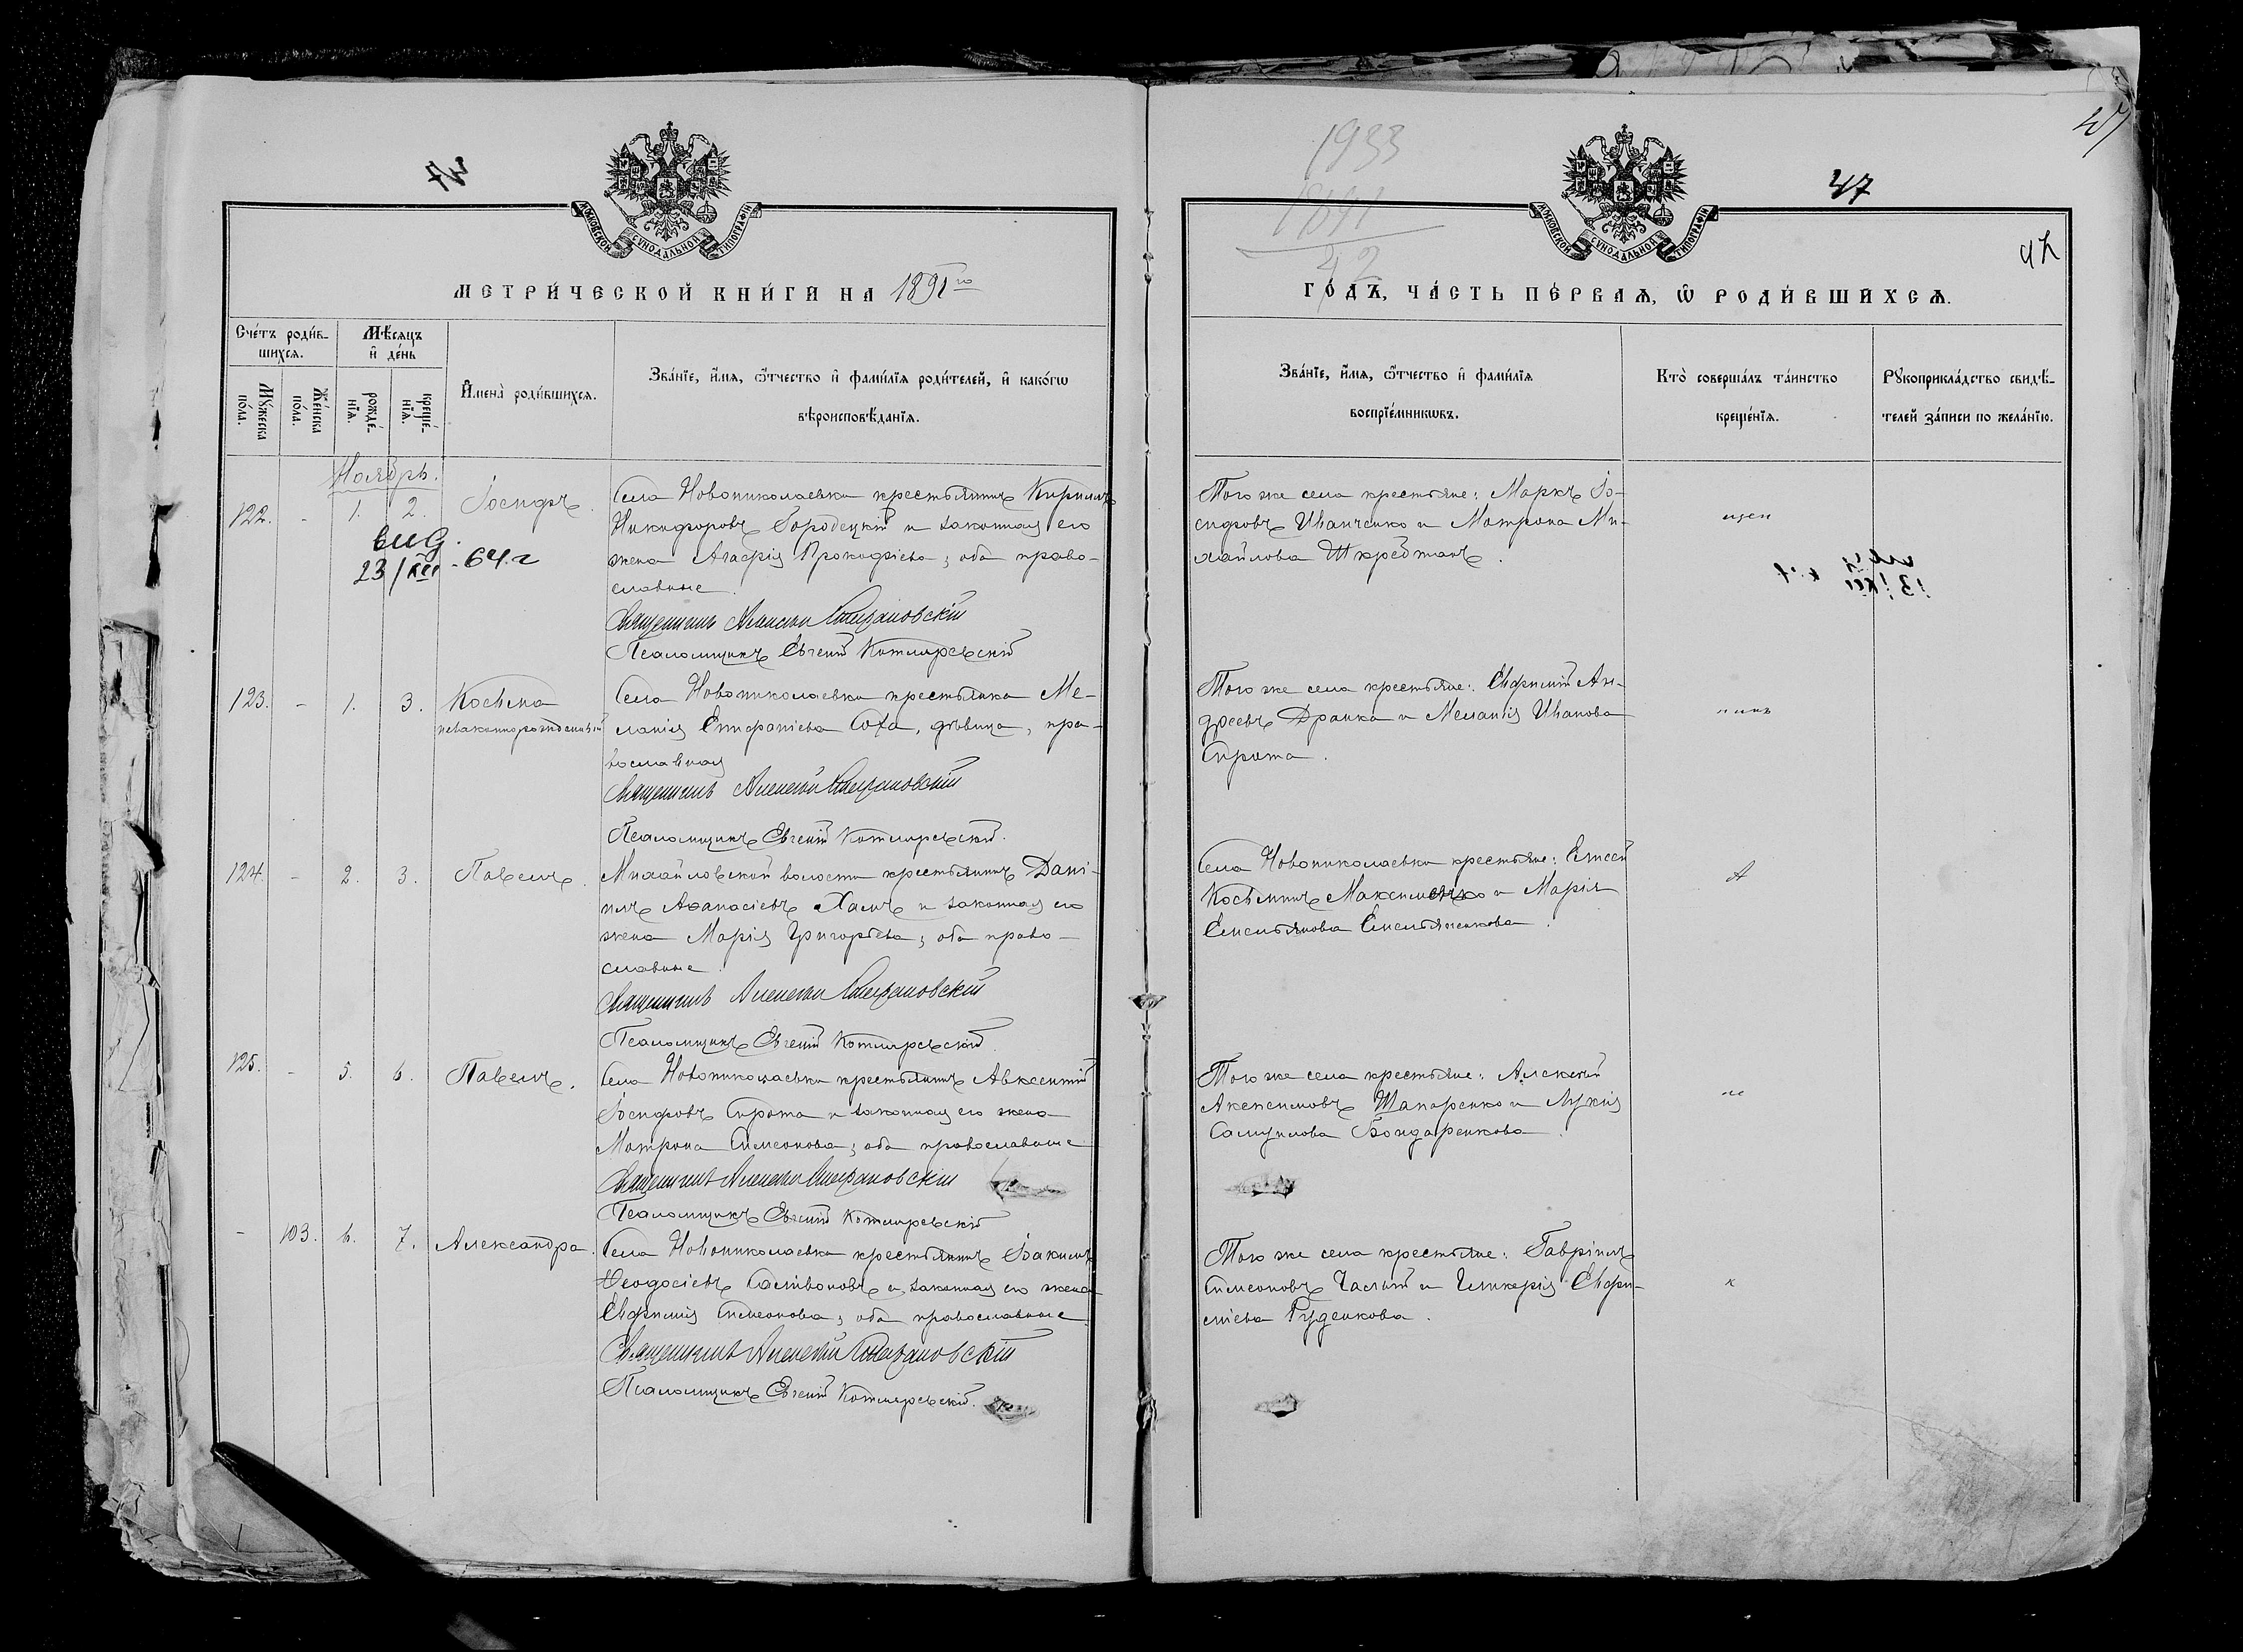 47
МОСКОВСКОЙ СѴНОДАЛЬНОЙ ТИПОГРАФІИ
МЕТРИ́ЧЕСКОЙ КНИ́ГИ НА 1891го
Сче́тъ роди́в-
шихсѧ.
Мѣ́сѧцъ
и҆ де́нь
Мꙋ́жеска
по́ла.
Же́нска
по́ла.
рожде́-
нїѧ.
креще́-
нїѧ.
И҆мена̀ роди́вшихсѧ.
Зва́нїе, и҆́мѧ, ѻ҆́тчество и҆ фами́лїѧ роди́телей, и҆ како́гѡ
вѣроисповѣ́данїѧ.
Ноябрь.
122. - 1. 2. Іосифъ.
23/XII - 64 г
Села Новониколаевки крестьянинъ Кириллъ
Никифоровъ Городецкій и законная его
жена Агафія Прокофіева; оба право-
славные.
Священникъ Алексѣй
Псаломщикъ Евгеній Котляревскій
123. - 1. 3. Косьма
незаконнорожденный
Села Новониколаевки крестьянка Ме-
ланія Епифаніева Соха, дѣвица, пра-
вославная
Священникъ Алексѣй
Псаломщикъ Евгеній Котляревскій.
124. - 2. 3. Павелъ.
Михайловской волости крестьянинъ Дані-
илъ Аѳанасіевъ Халъ и законная его
жена Марія Григорьева; оба право-
славные.
Священникъ Алексѣй
Псаломщикъ Евгеній Котляревскій.
125. - 5. 6. Павелъ.
Села Новониколаевки крестьянинъ Авксентій
Іосифовъ Сирота и законная его жена
Матрона Симеонова; оба православные
Священникъ Алексѣй
Псаломщикъ Евгеній Котляревскій
- 103. 6. 7. Александра.
Села Новониколаевки крестьянинъ Іоакимъ
Ѳеодосіевъ и законная его жена
Евфимія Симеонова; оба православные
Священникъ Алексѣй
Псаломщикъ Евгеній Котляревскій.
47
1933
1891
42
47
47
МОСКОВСКОЙ СѴНОДАЛЬНОЙ ТИПОГРАФІИ
ГО́ДЪ, ЧА́СТЬ ПЕ́РВАѦ, Ѡ҆ РОДИ́ВШИХСѦ.
Зва́нїе, и҆́мѧ, ѻ҆́тчество и҆ фами́лїѧ
воспрїе́мникѡвъ.
Кто̀ соверша́лъ та́инство
креще́нїѧ.
Рꙋкоприкла́дство свидѣ́-
телей за́писи по жела́нїю.
Того же села крестьяне: Маркъ Іо-
сифовъ Иванченко и Матрона Ми-
хайлова
щен
Того же села крестьяне: Евфимій Ан-
дреевъ Дранка и Меланія Иванова
Сирота.
никъ
Села Новониколаевки крестьяне: Елисей
Косьминъ Максименко и Марія
Емельянова Емельяненкова.
А
Того же села крестьяне: Алексѣй
Акексимовъ Шапаренко и Лукія
Самуилова Бондаренкова.
ле
Того же села крестьяне: Гавріилъ
Симеоновъ Чалый и Гликерія Евфи-
міева Руденкова.
к